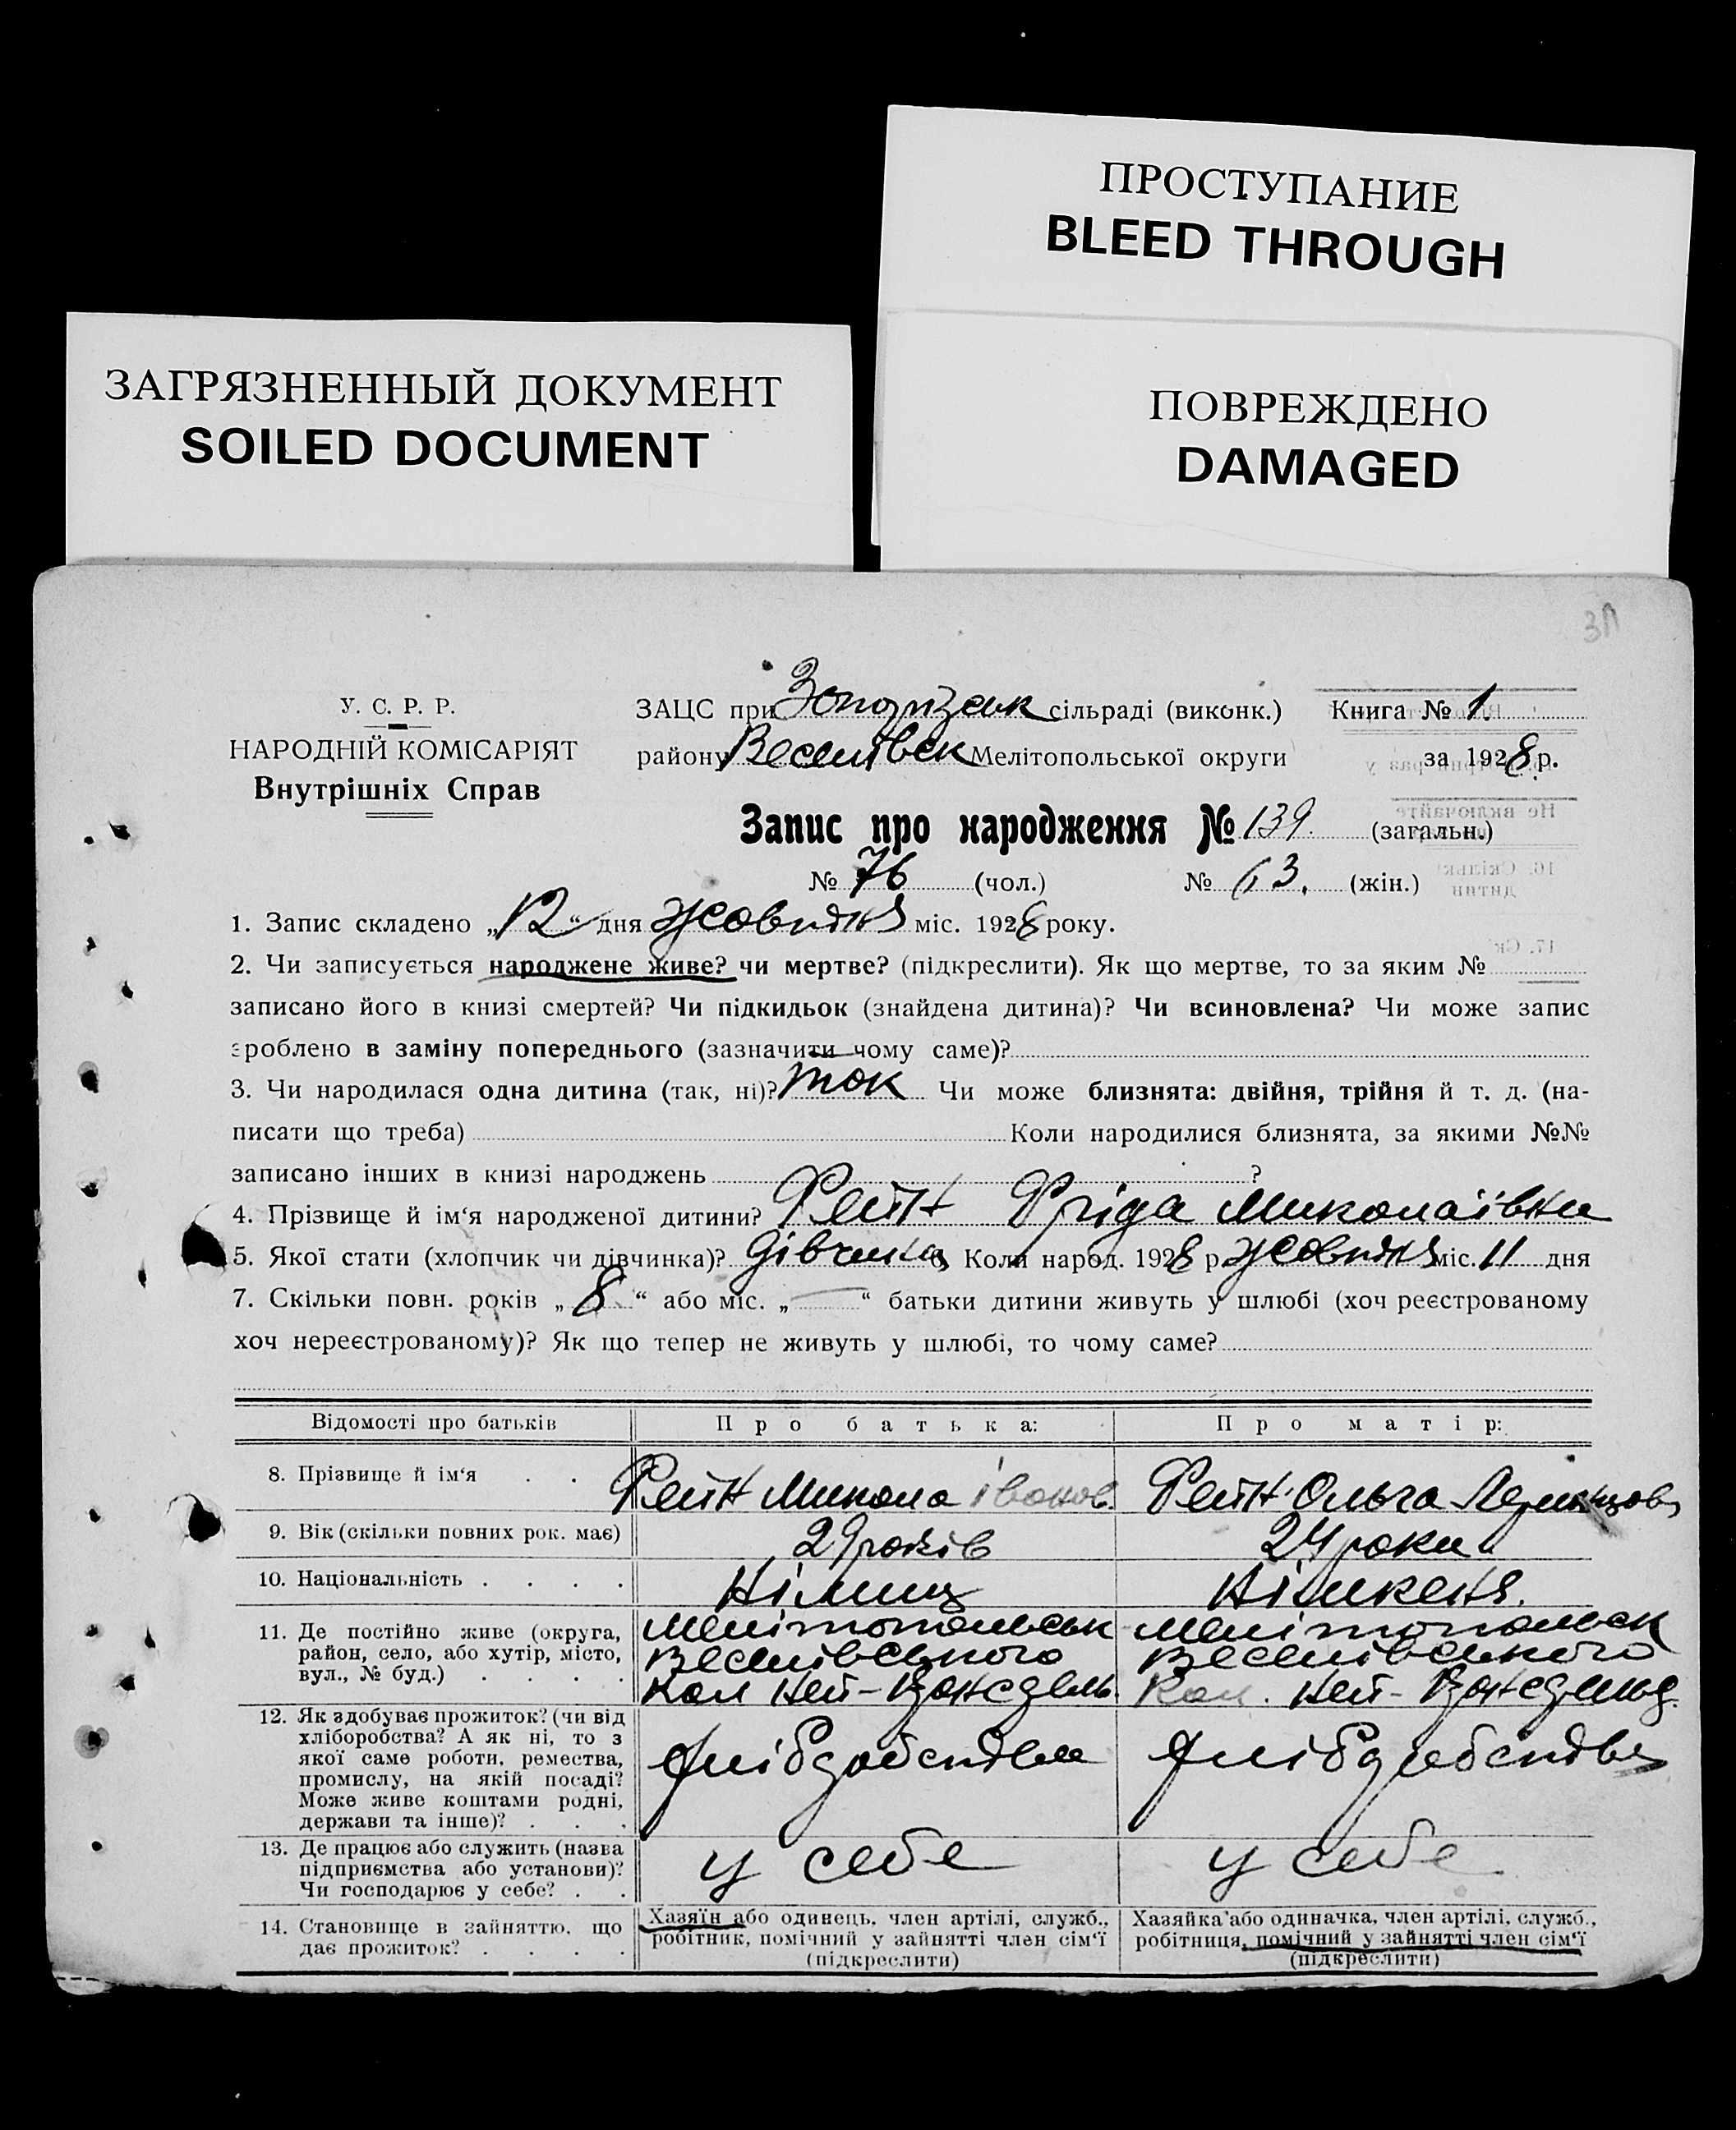 ПРОСТУПАНИЕ
BLEED THROUGH
ЗАГРЯЗНЕННЫЙ ДОКУМЕНТ
SOILED DOCUMENT
ПОВРЕЖДЕНО
DAMAGED
У. С. Р. Р.
НАРОДНІЙ КОМІСАРІЯТ
Внутрішніх Справ
ЗАЦС при сільраді (виконк.) Книга № 1.
району Веселівск Мелітопольської округи за 1928 р.
Запис про народження № 139. (загальн.)
№ 76 (чол.) № 63. (жін.)
1. Запис складено „12“ дня жовтня міс. 1928 року.
2. Чи записується народжене живе? чи мертве? (підкреслити). Як що мертве, то за яким №
записано його в книзі смертей? Чи підкидьок (знайдена дитина)? Чи всиновлена? Чи може запис
зроблено в заміну попереднього (зазначити чому саме)?
3. Чи народилася одна дитина (так, ні)? так Чи може близнята: двійня, трійня й т. д. (на-
писати що треба) Коли народилися близнята, за якими №№
записано інших в книзі народжень ?
4. Прізвище й ім‘я народженої дитини? Фріда Миколаївна
5. Якої стати (хлопчик чи дівчинка)? дівчинка 6. Коли народ. 1928 р. жовтня міс. 11 дня
7. Скільки повн. років „8“ або міс. „—“ батьки дитини живуть у шлюбі (хоч реєстрованому
хоч нереєстрованому)? Як що тепер не живуть у шлюбі, то чому саме?
Відомості про батьків Про батька: Про матір:
8. Прізвище й ім‘я . . . Микола Іванов. Ольга
9. Вік (скільки повних рок. має) 29 років 24 роки
10. Національність . . . . Німець Німкеня.
11. Де постійно живе (округа,
район, село, або хутір, місто,
вул., № буд.) . . . .
Мелітопольськ
Веселівського
Кол Ней-
Мелітопольск
Веселівського
Кол. Ней-
12. Як здобуває прожиток? (чи від
хліборобства? А як ні, то з
якої саме роботи, ремества,
промислу, на якій посаді?
Може живе коштами родні,
держави та інше)? . . .
хліборобства
хліборобства
13. Де працює або служить (назва
підприємства або установи)?
Чи господарює у себе? . .
у себе
у себе
14. Становище в зайняттю, що
дає прожиток? . . . .
Хазяїн або одинець, член артілі, служб.,
робітник, помічний у зайнятті член сім‘ї
(підкреслити)
Хазяйка або одиначка, член артілі, служб.,
робітниця, помічний у зайнятті член сім‘ї
(підкреслити)